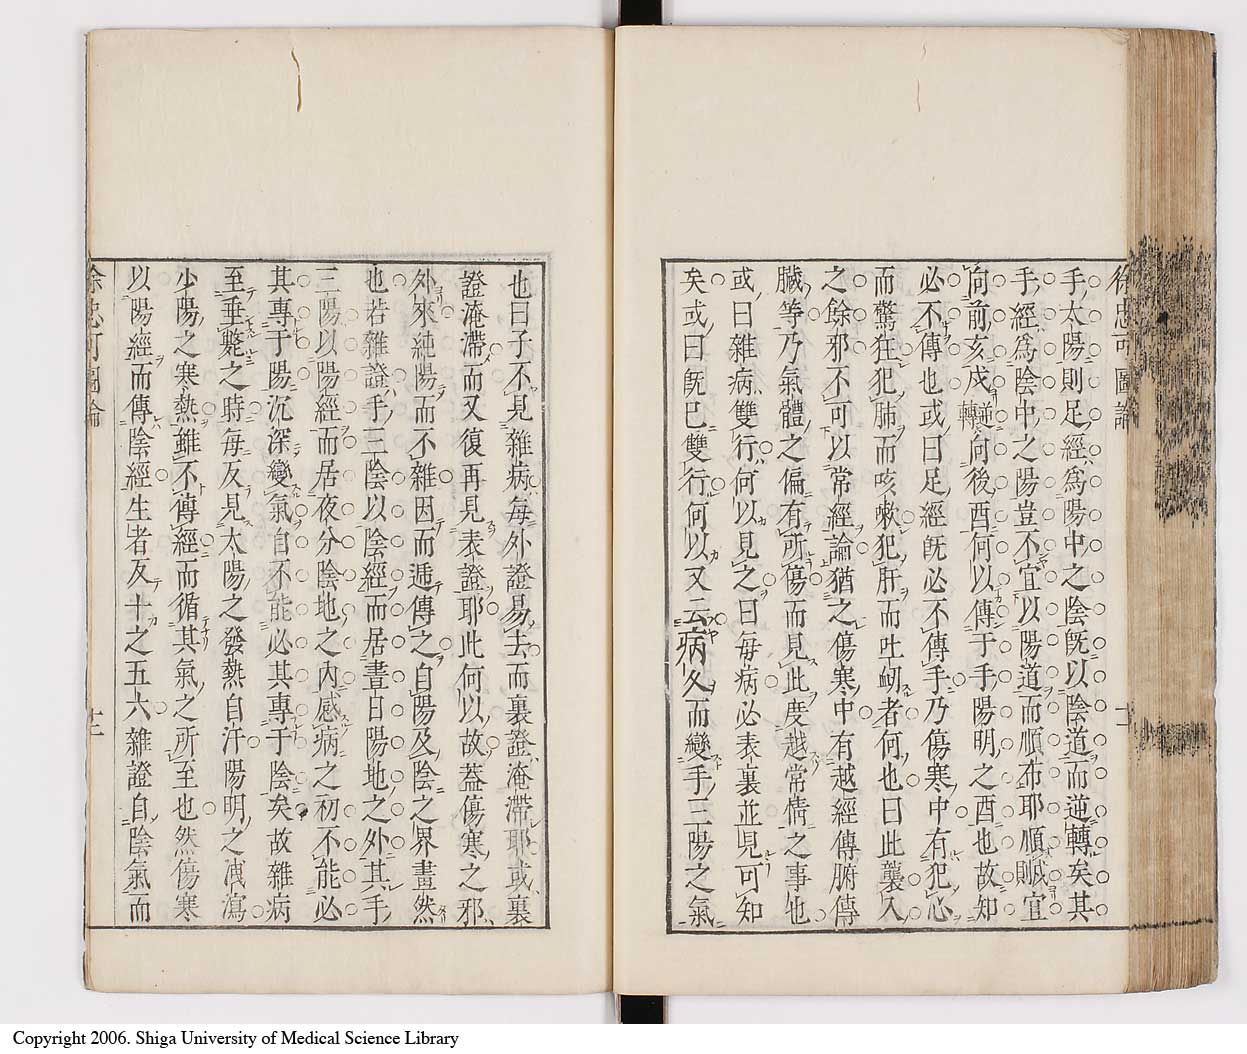 徐忠可圖論
十一
手太陽則足經爲陽中之陰既以陰道而逆轉矣其
手經爲陰中之陽豈不宜以陽道而順布耶順則宜
向前亥戌逆轉向後酉何以傳于手陽明之酉也故知
必不傳也或曰足經既必不傳手乃傷寒中有犯心
而驚狂犯肺而咳嗽犯肝而吐蚘者何也曰此襲入
之餘邪不可以常經論猶之傷寒中有越經傳腑傳
臟等乃氣體之偏有所傷而見此度越常情之事也
或曰雜病雙行何以見之曰每病必表裏並見可知
矣或曰既巳雙行何以又云病久而變手三陽之氣
也曰子不見雜病每外證易去而裏證淹滯耶或裏
證淹滯而又復再見表證耶此何以故蓋傷寒之邪
外來純陽而不雜因而遞傳之自陽及陰之界畫然
也若雜證手三陰以陰經而居晝日陽地之外其手
三陽以陽經而居夜分陰地之內感病之初不能必
其專于陽沉深變氣自不能必其專于陰矣故雜病
至垂斃之時每反見太陽之發熱自汗陽明之洩瀉
少陽之寒熱雖不傳經而循其氣之所至也然傷寒
以陽經而傳陰經生者反十之五六雜證自陰氣而
徐忠可圖論
十二
Copyright 2006. Shiga University of Medical Science Library